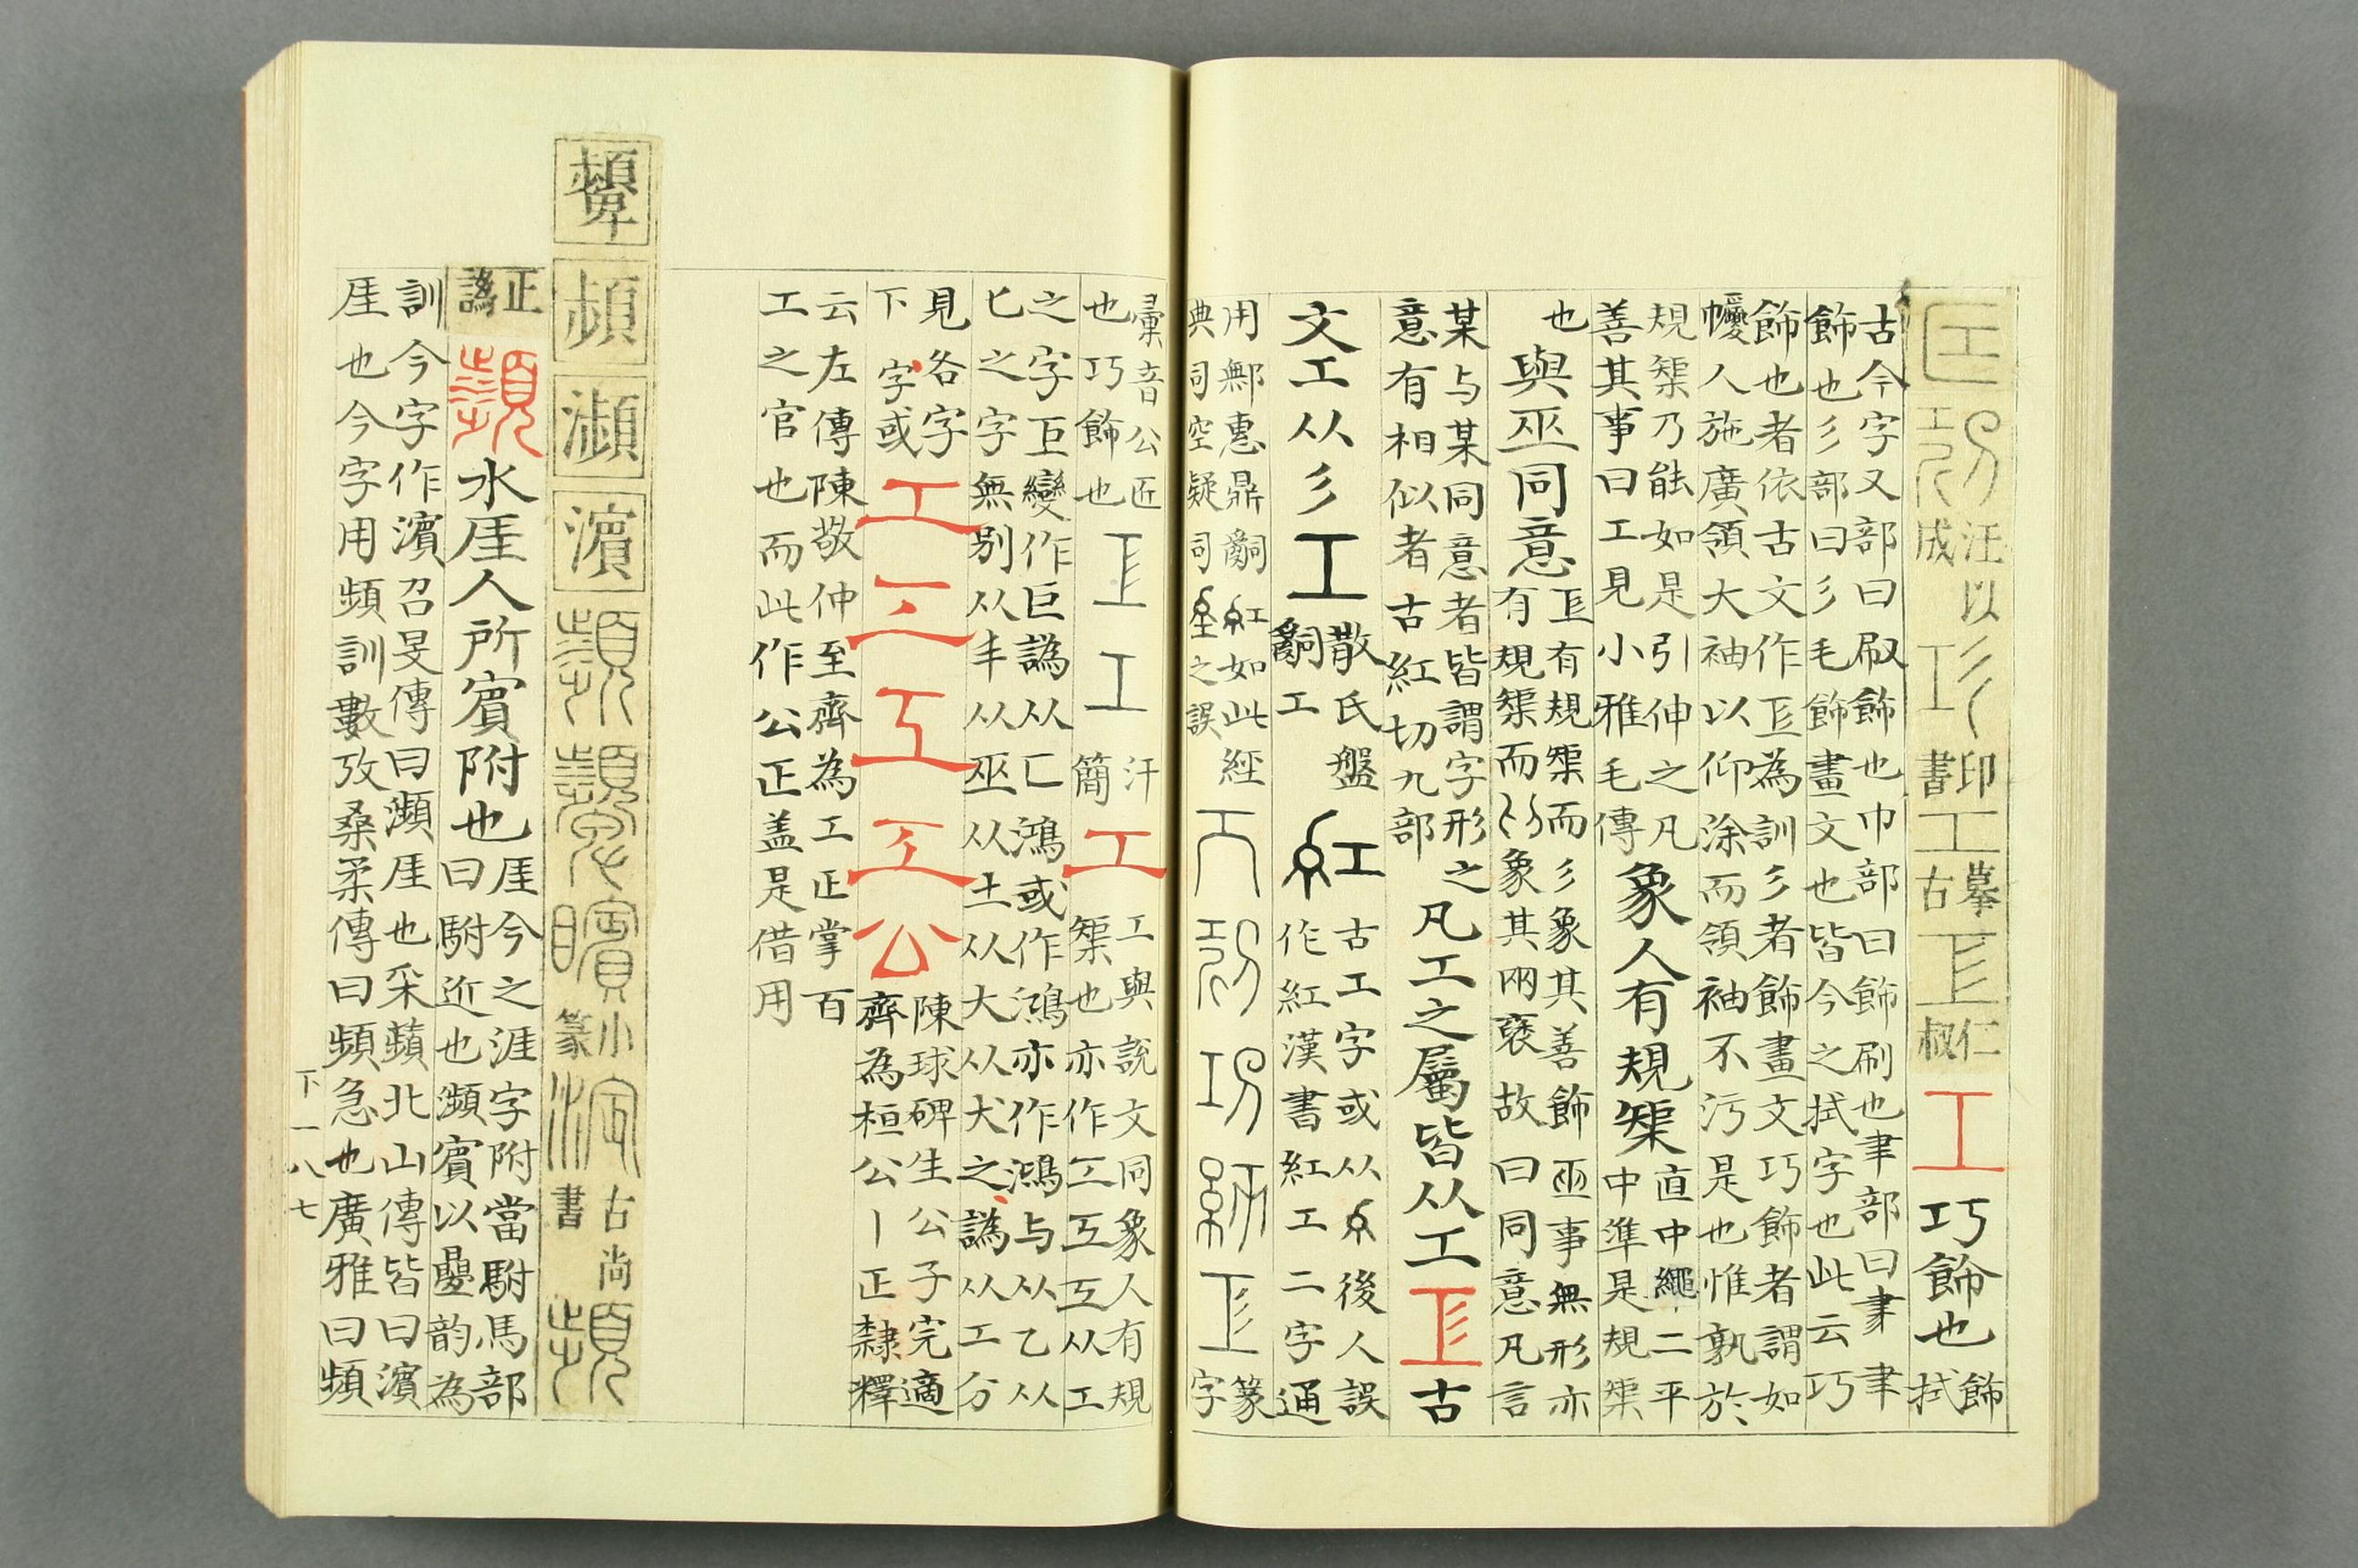 汪以成
印書
摹古
仁叔
工巧飾也飾拭
古今字又部曰㕞飾也巾部曰飾刷也聿部曰
飾也彡部曰彡毛飾畫文也皆今之拭字也此云巧
飾也者依古文作𢒄為訓彡者飾畫文巧飾者謂如
幔人施廣領大袖以仰涂而領袖不污是也惟孰於
規榘乃能如是引伸之凡
善其事曰工見小雅毛傳
象人有規榘
直中繩二平
中準是規榘
也
與巫同意
𢒄有規榘而彡象其善飾巫事無形亦
有規榘而象其兩褎故曰同意凡言
某与某同意者皆謂字形之
意有相似者古紅切九部
凡工之屬皆从工𢒄古
文工从彡
工
散氏盤
工
紅
古工字或从糸後人誤
作紅漢書紅工二字通
用鄦惠鼎嗣紅如此經
典司空疑司𡉀之誤
篆字
彙音公匠
也巧飾也
汗簡
工
工與說文同象人有規
榘也亦作从工
之字巨變作巨譌从匚鴻或作鴻亦作鴻与从乙从
匕之字無别从丰从巫从土从大从犬之譌从工分
見各字
下字或
工
公
陳球碑生公子完適
齊為桓公丨正隸釋
云左傳陳敬仲至齊為工正掌百
工之官也而此作公正盖是借用
顰
頻
瀕
濱
小篆
古尚書
正譌
瀕水厓人所賓附也
厓今之涯字附當駙馬部
曰駙近也瀕賓以曡韵為
訓今字作濱召旻傳曰瀕厓也采蘋北山傳皆曰濱
厓也今字用頻訓數攷桑柔傳曰頻急也廣雅曰頻
下一八七